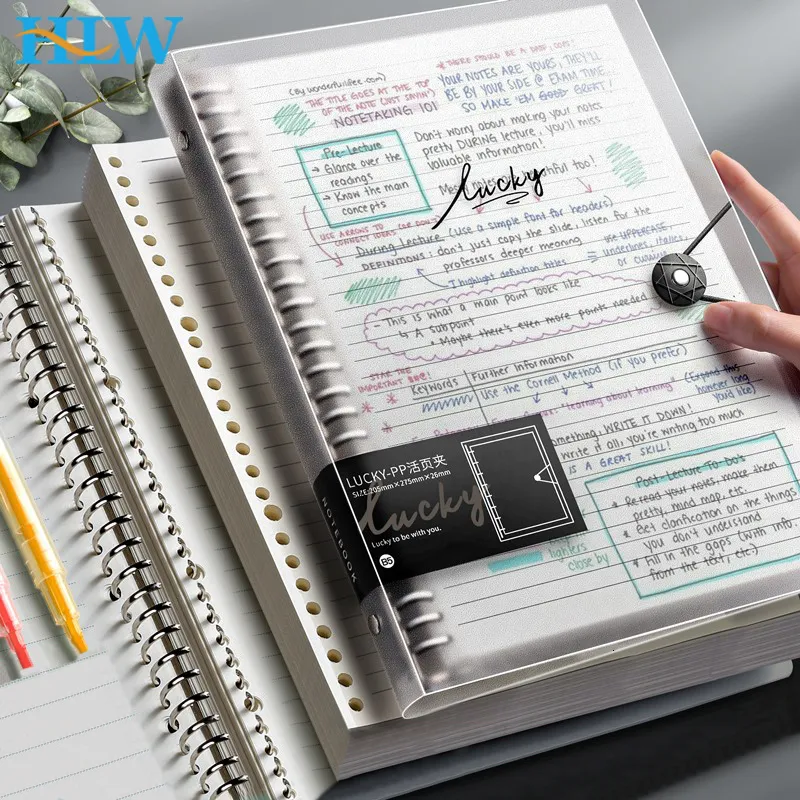 HLW
(By wonderfullBee.com)
* THERE SHOULD BE A
THE TITLE GOES AT THE TOP
OF THE NOTE (JUST SAYIN')
NOTETAKING 101
YOUR NOTES ARE YOURS, THEY'LL
BE BY YOUR SIDE @ EXAM TIME
SO MAKE 'EM GOOD GREAT!
Pre-Lecture
→ Glance over the
readings
→ Know the main
concepts
Don't worry about making your notes
pretty DURING lecture, you'll miss
valuable information!
too!
lucky
USE ARROWS TO
CONNECT IDEAS (OR DON'T
During Lecture (use a simple font for headers)
DEFINITIONS: don't just copy the slide, listen for the
professors deeper meaning
I highlight definition titles
= use UPPERCASE,
underlines, italics
or
- This is what a main point looks like
↳ A subpoint
* Maybe there's even more points needed
STAR THE
IMPORTANT ONE!
Keywords
Further Information
Use the Cornell Method (if you prefer)
"learning about learning"
(Expand this
however long
you'd like)
WRITE IT DOWN!
it all, you're writing too much
IS A GREAT SKILL!
LUCKY-PP活页夹
SIZE:205mm×275mm×26mm
lucky
Lucky to be with you.
B5
NOTEBOOK
close by
Post-Lecture To-Do's
* Re-read your notes, make them
pretty, mind map, etc.
* Get clarification on the things
you don't understand
* Fill in the gaps (with info.
from the text, etc.)